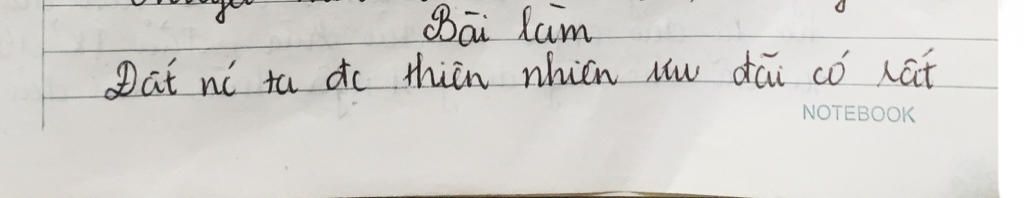 Bài làm
Đất nc ta đc thiên nhiên ưu đãi có rất
NOTEBOOK